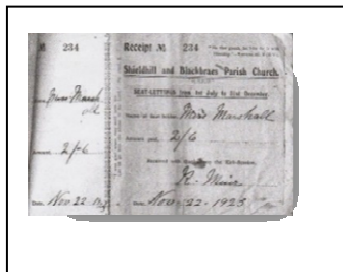 234
Receipt No. 234
Shieldhill and Blackbraes Parish Church.
SEAT-LETTINGS from 1st July to 31st December.
Name of Seat Holder Miss Marshall
Amount paid, 2/6
Amount, 2/-6
Received with thanks for the Kirk-Session,
R. Muir
Date, Nov 22
Date, Nov 22-1925